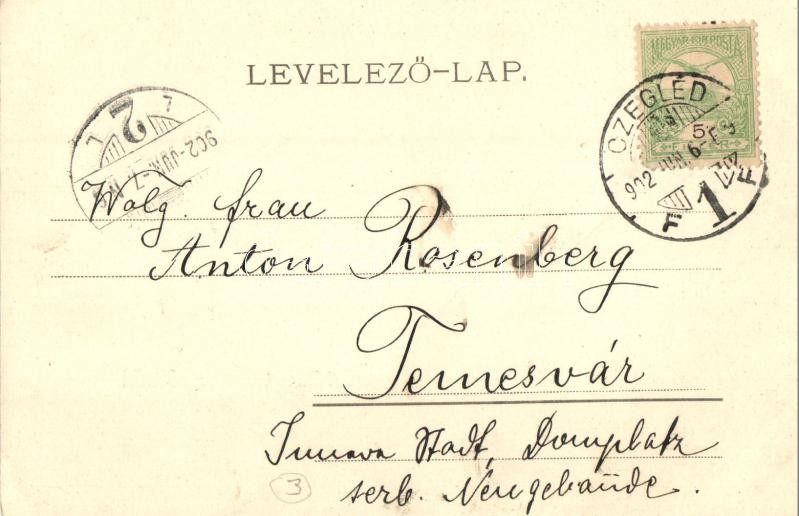 LEVELEZŐ-LAP.
MAGYAR KIR. POSTA
5
CZEGLÉD
902 JUN. 6
F 1 F
2
902-JUN-7
Wolg. Frau
Anton Rosenberg
Temesvár
Innere Stadt, Domplatz
serb. Neugebäude.
3